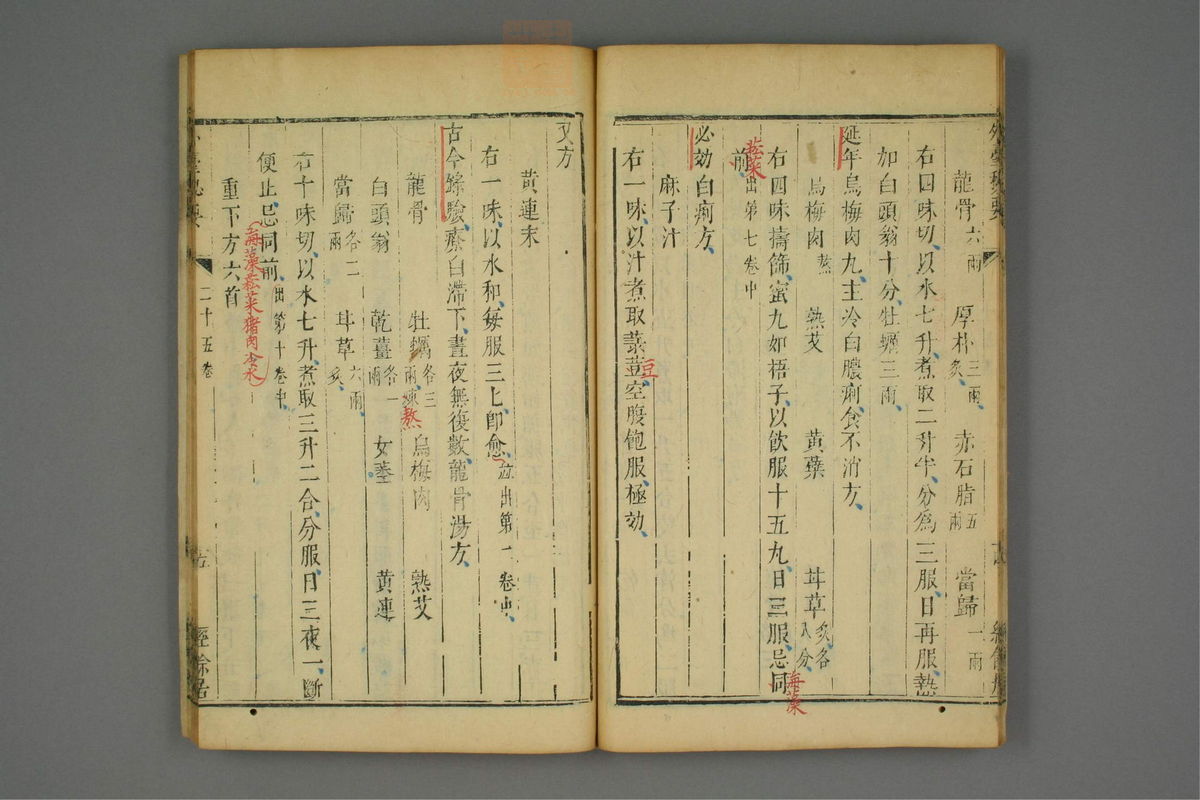 龍骨六兩 厚朴三兩炙 赤石脂五兩 當歸一兩
右四味切以水七升煮取二升半分爲三服日再服熱
加白頭翁十分牡蠣三兩
延年烏梅肉丸主冷白膿痢食不消方
烏梅肉熬 熟艾 黄蘗 甘草炙各八分
右四味擣篩蜜丸如梧子以飲服十五丸日三服忌同
海藻
菘菜
前出第七卷中
必効白痢方
麻子汁
右一味以汁煮取菉荳空腹飽服極効
豆
又方
黄連末
右一味以水和每服三七卽愈並出第一卷中
古今錄驗療白滯下晝夜無復數龍骨湯方
龍骨 牡蠣各三兩 烏梅肉 熟艾
熬
白頭翁 乾薑各一兩 女萎 黄連
當歸各二兩 甘草六兩炙
右十味切以水七升煮取三升二合分服日三夜一斷
便止忌同前出第十卷中
海藻菘菜猪肉冷水
重下方六首
二十五卷